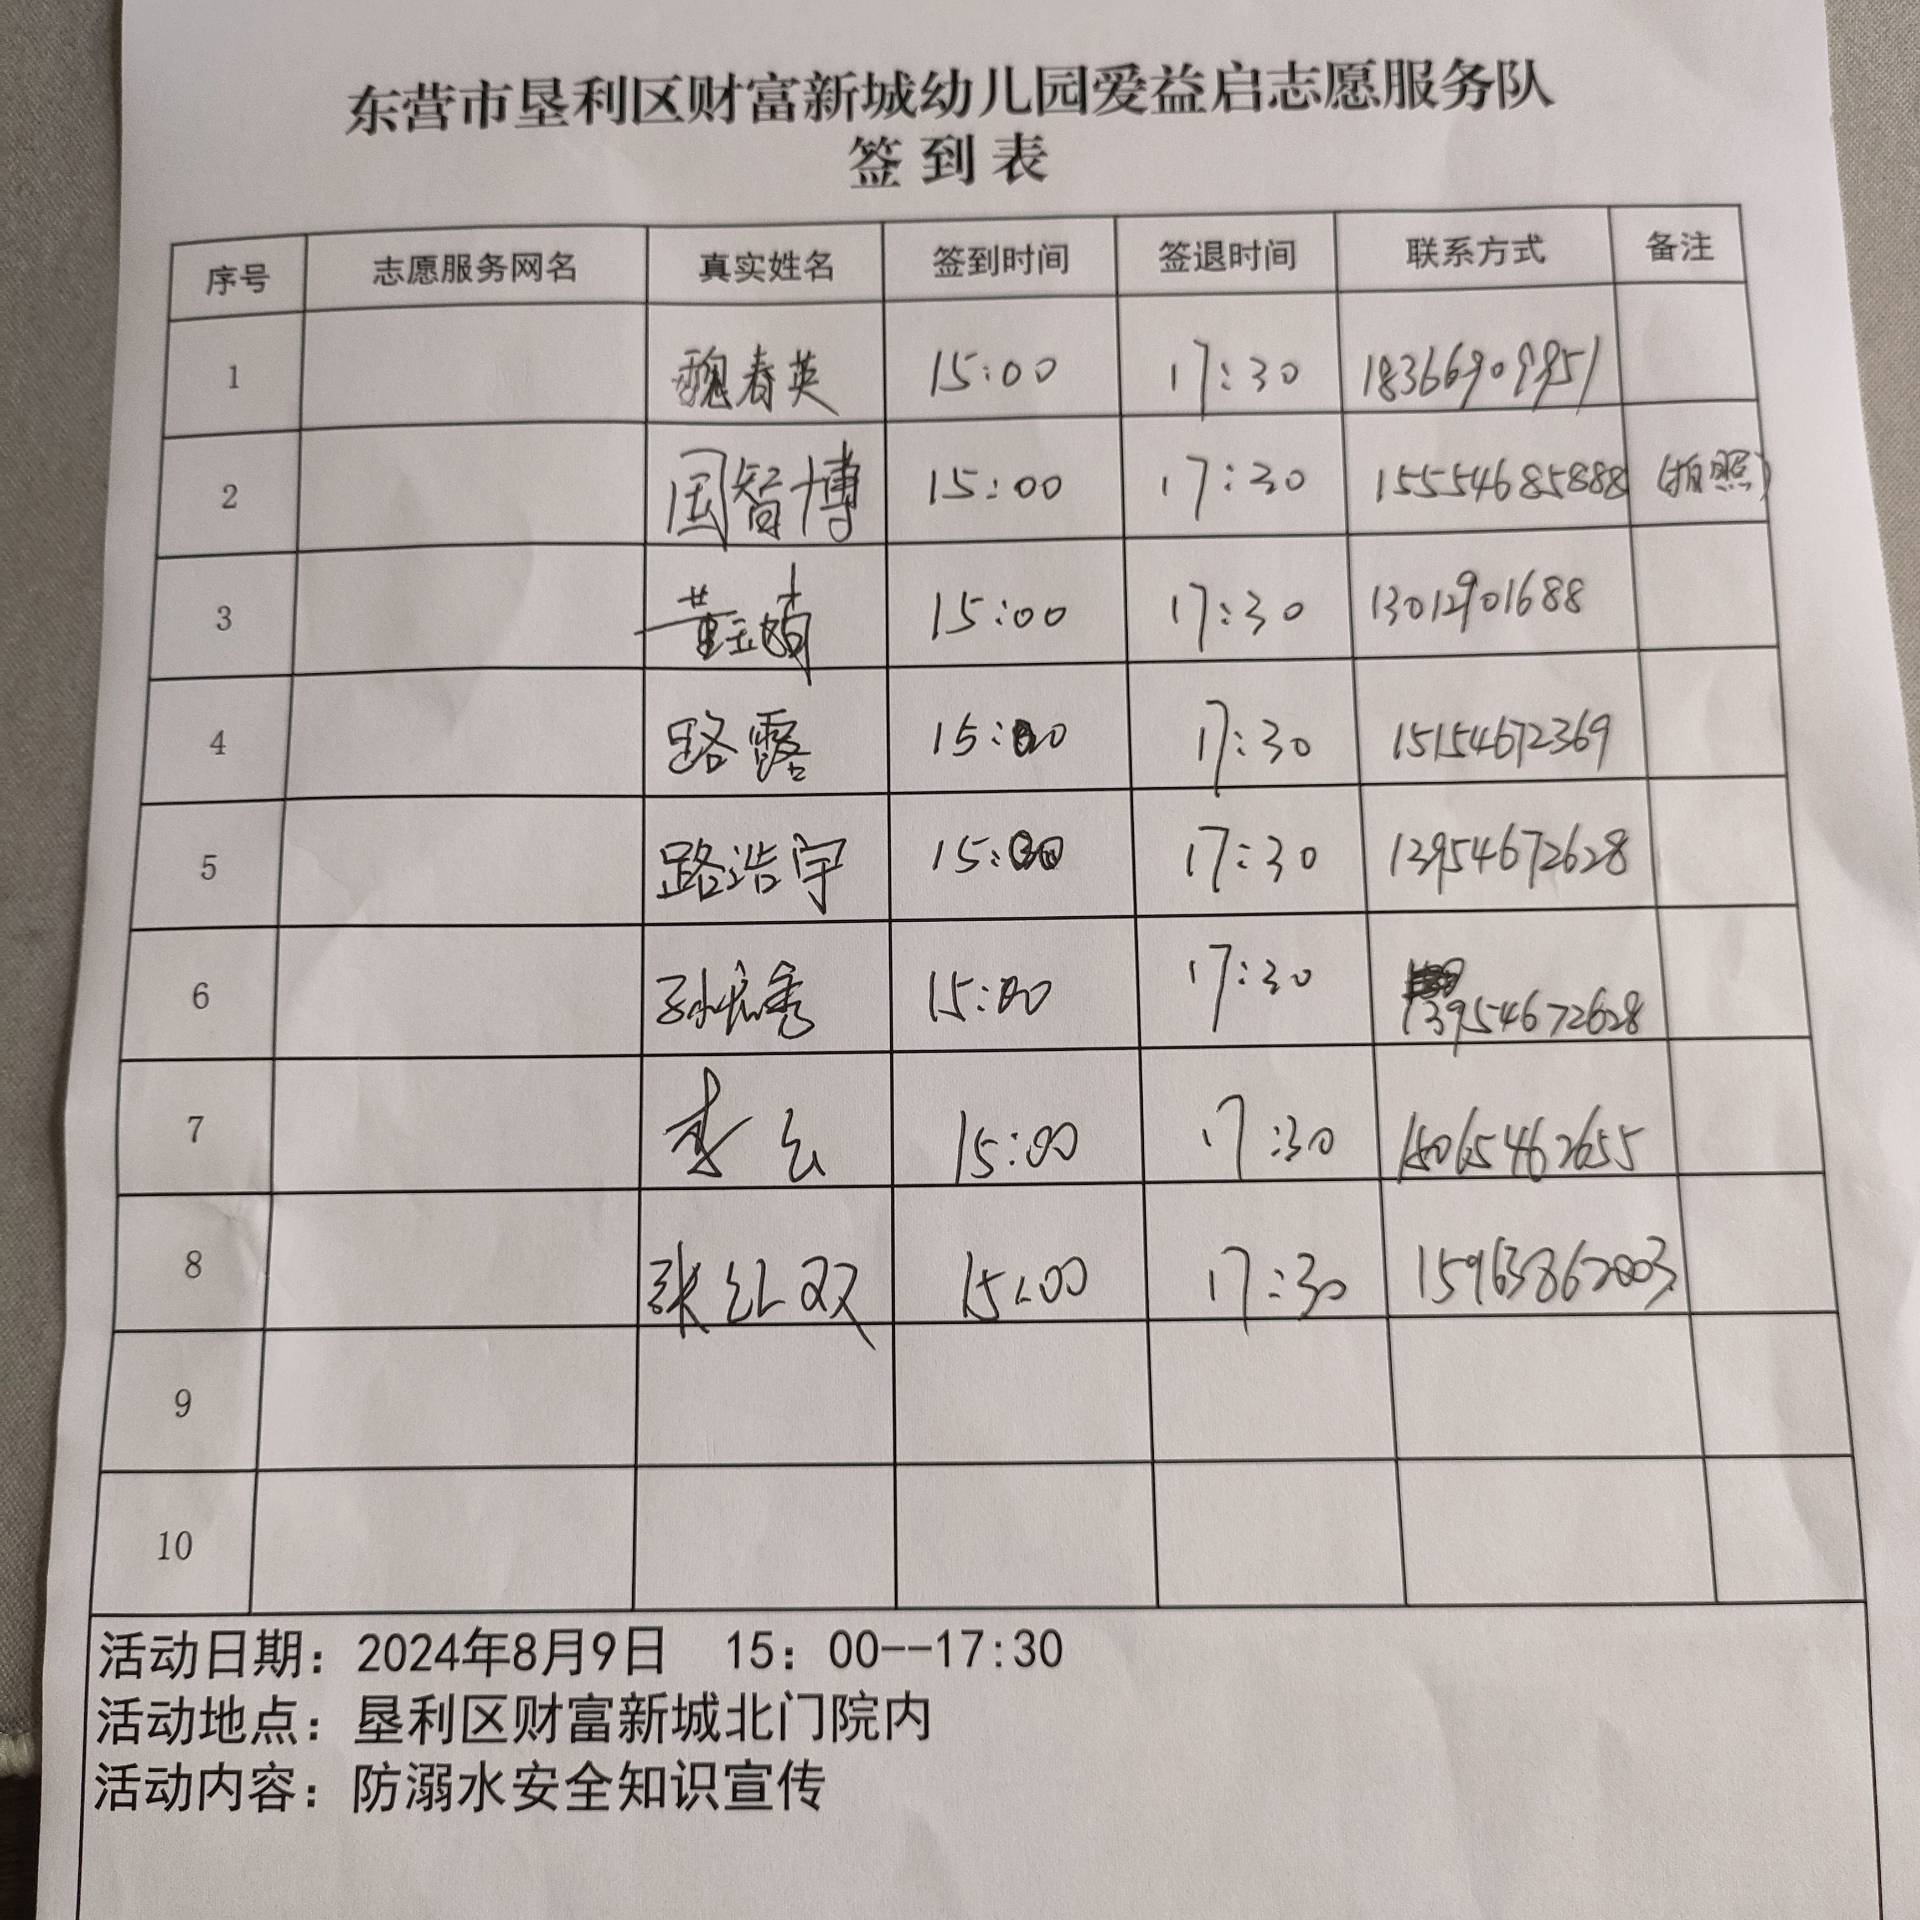 东营市垦利区财富新城幼儿园爱益启志愿服务队
签到表
序号 志愿服务网名 真实姓名 签到时间 签退时间 联系方式 备注
1 魏春英 15:00 17:30 18366909951
2 国智博 15:00 17:30 15554685888 (拍照)
3 15:00 17:30 13012901688
4 路露 15:00 17:30 15154672369
5 路浩宇 15:00 17:30 13954672628
6 15:00 17:30 13954672628
7 李云 15:00 17:30 15065462655
8 张红双 15:00 17:30 15963862003
9
10
活动日期：2024年8月9日 15：00--17:30
活动地点：垦利区财富新城北门院内
活动内容：防溺水安全知识宣传